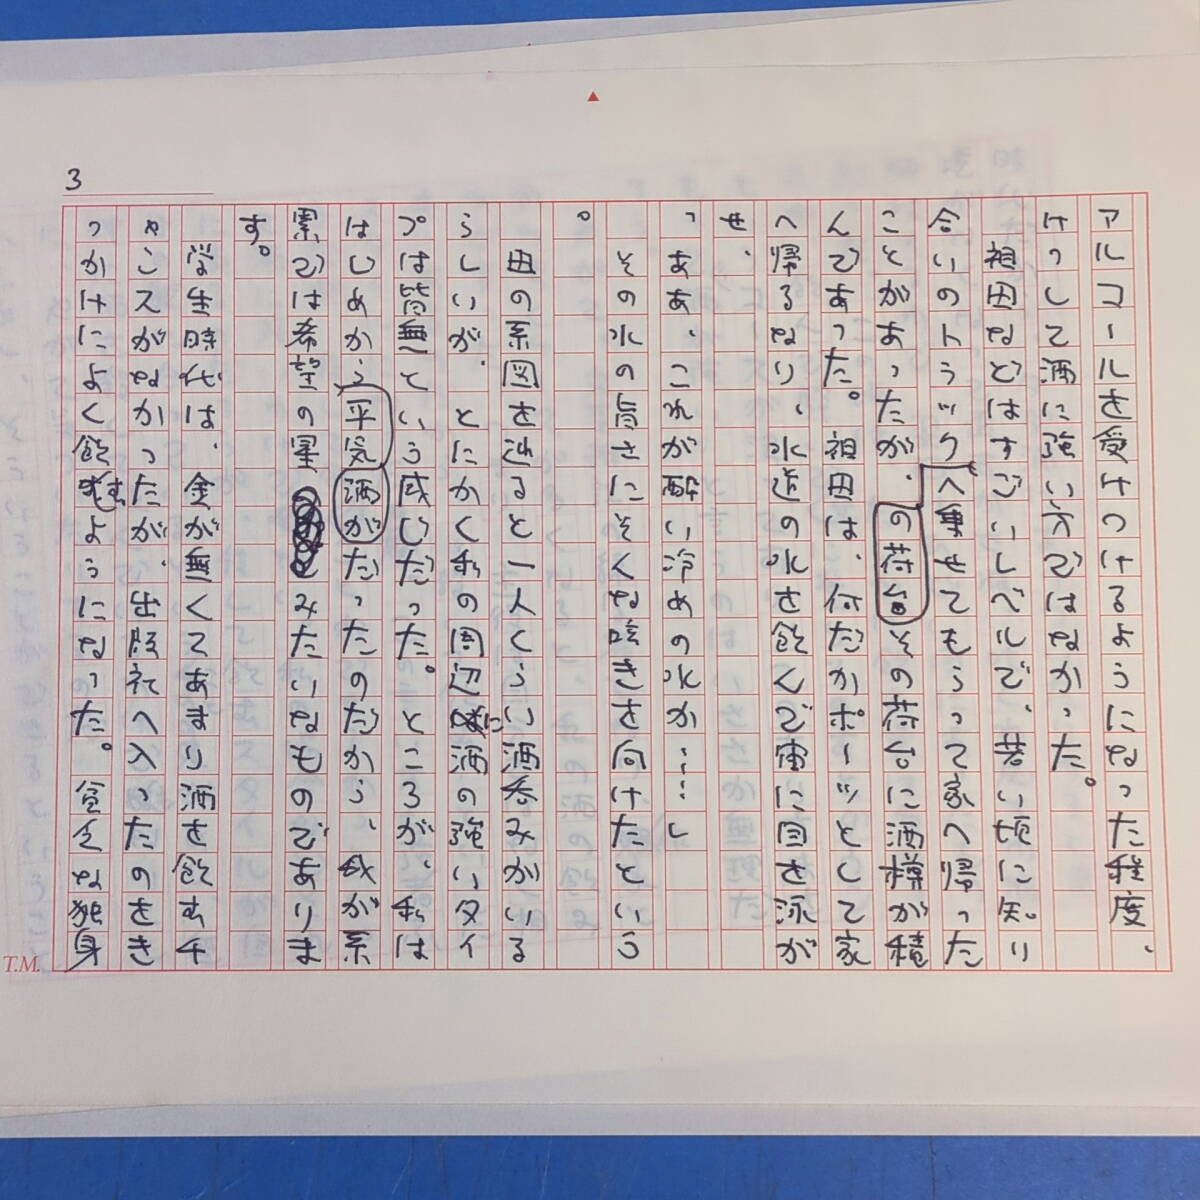 3
アルコールを受けつけるようになった程度、
けっして酒に強い方ではなかった。
祖母などはすごいレベルで、若い頃に知り
合いのトラックの荷台へ乗せてもらって家へ帰った
ことがあったが、その荷台に酒樽が積
んであった。祖母は、何だかポーッとして家
へ帰るなり、水道の水を飲んで宙に目を泳が
せ、
「ああ、これが酔い冷めの水か……」
その水の旨さにそんな呟きを向けたという
。
母の系図を辿ると一人くらい酒呑みがいる
らしいが、とにかく私の周辺に酒の強いタイ
プは皆無という感じだった。ところが、私は
はじめから酒が平気だったのだから、我が系
累では希望の星みたいなものでありま
す。
学生時代は、金が無くてあまり酒を飲むチ
ャンスがなかったが、出版社へ入ったのをき
っかけによく飲むようになった。貧乏な独身
T.M.